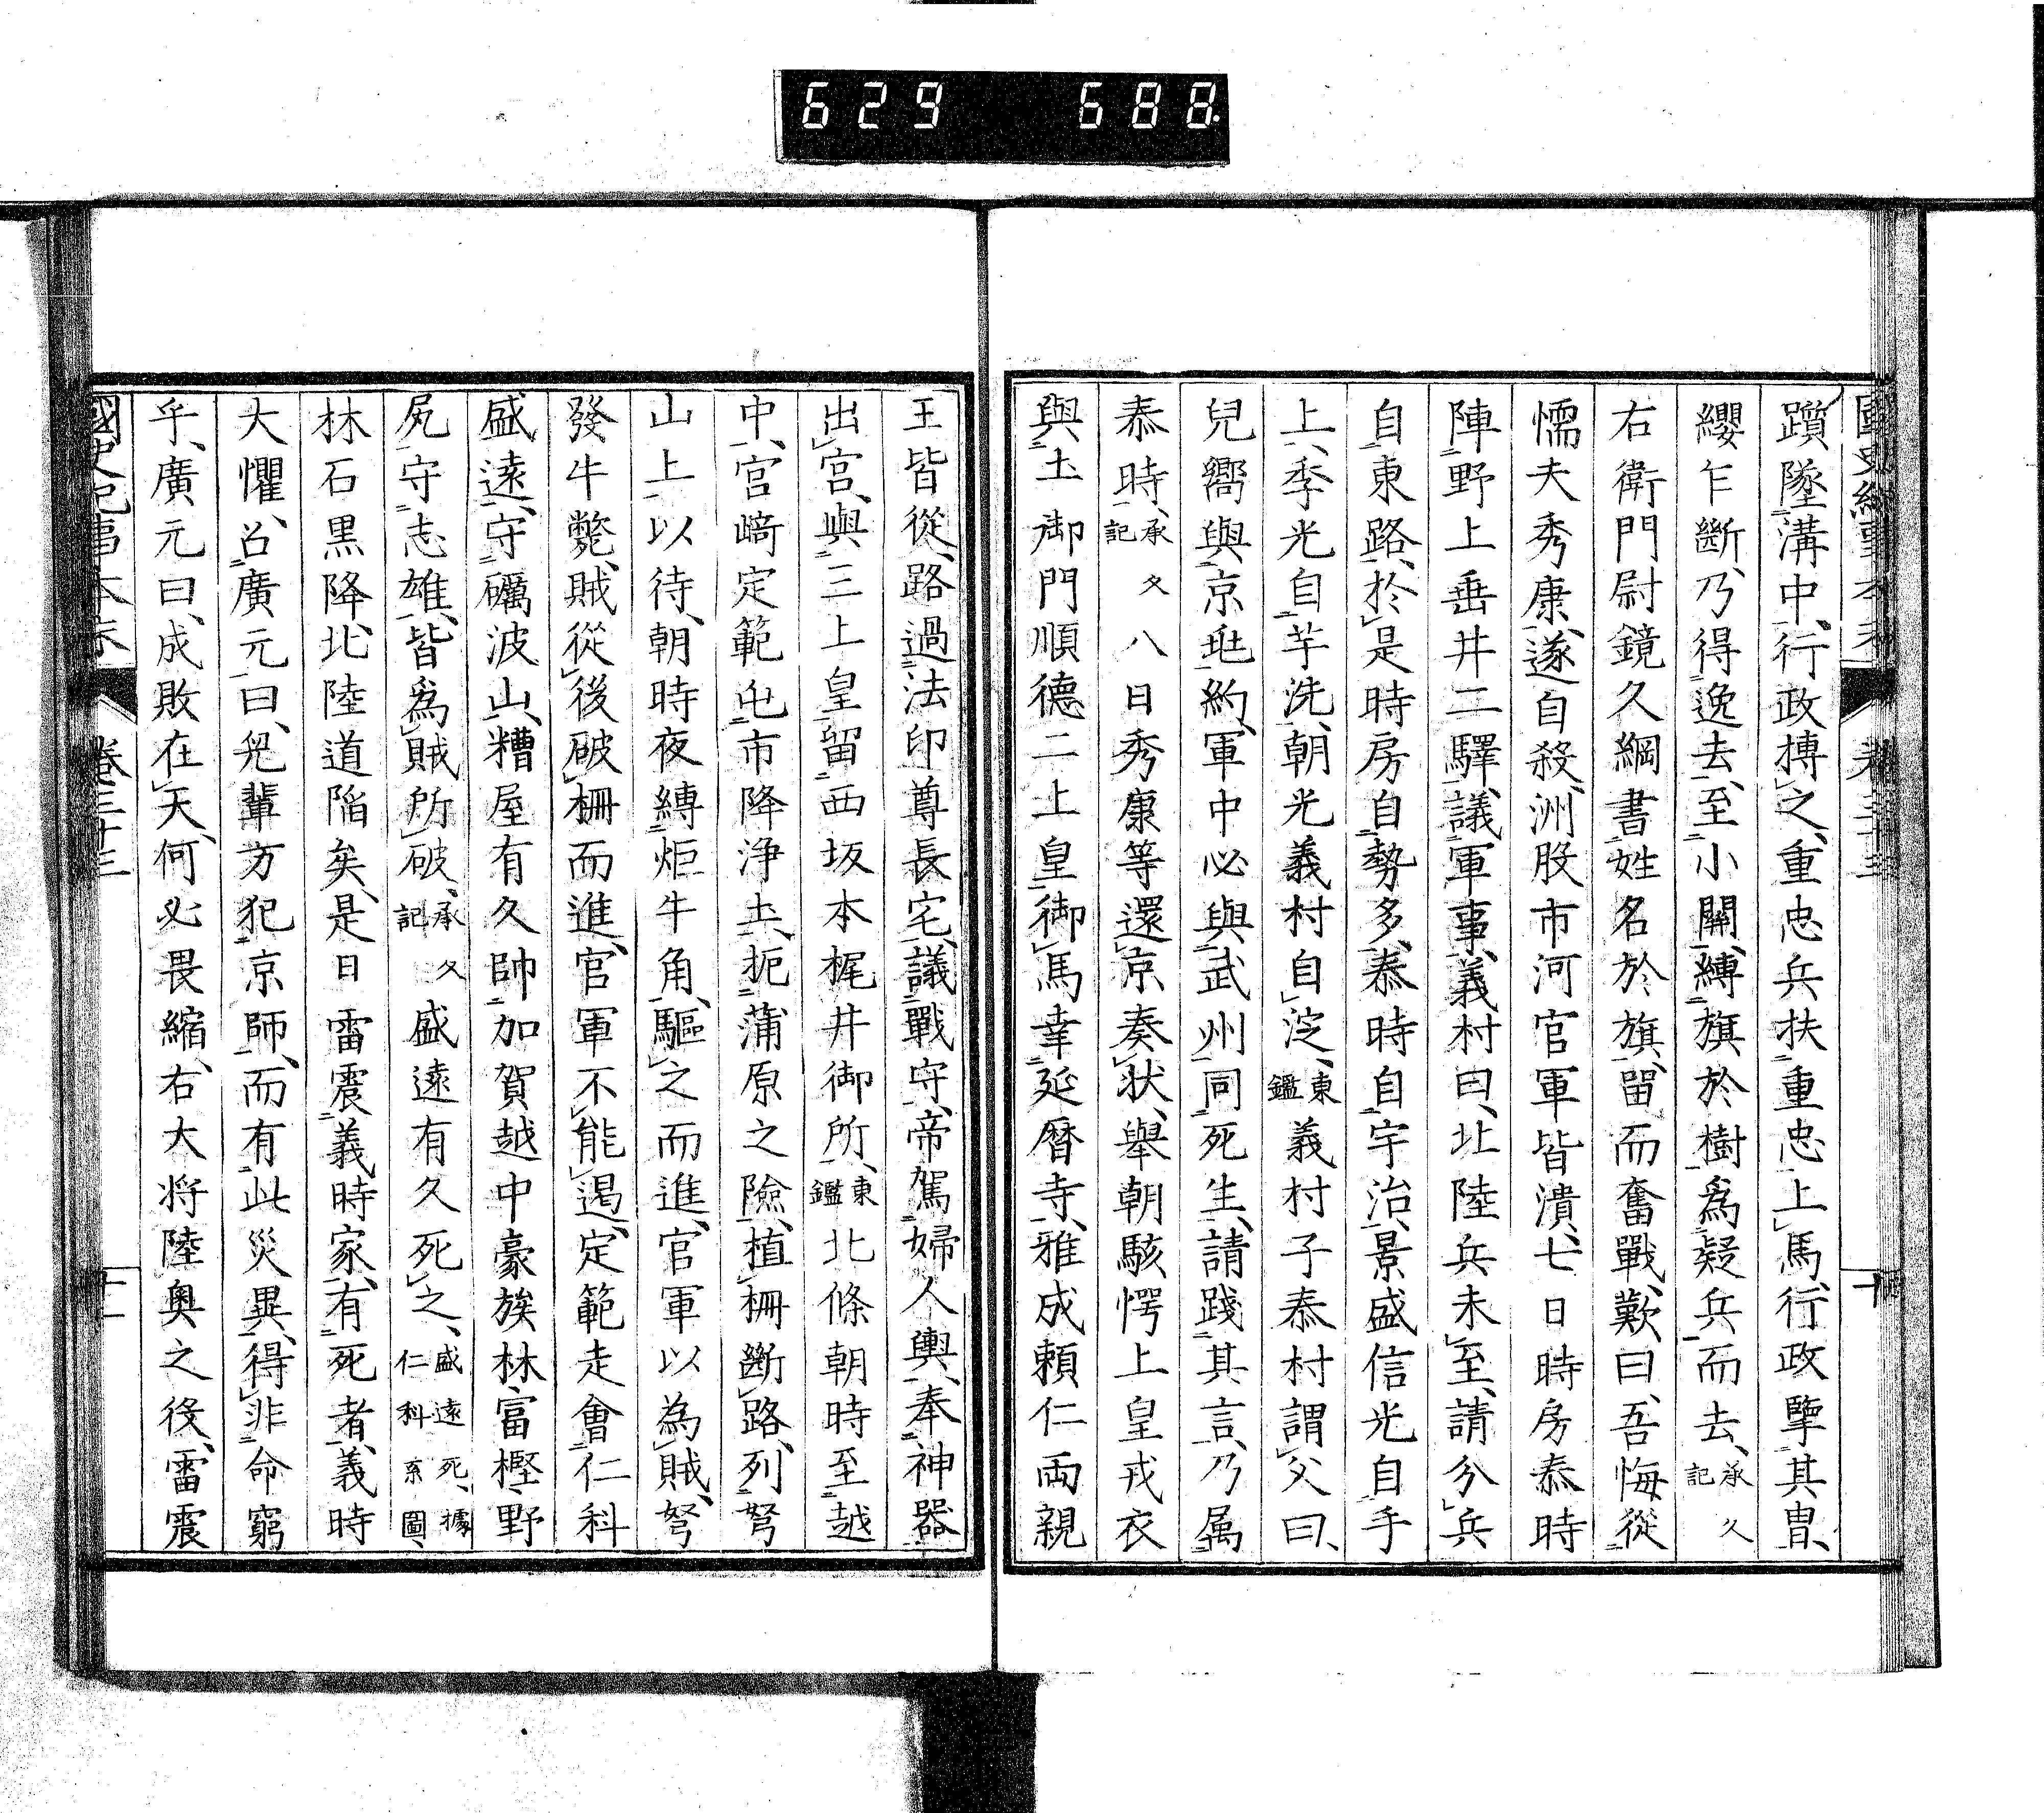 629 688
國史紀事本末 卷三十三 十
躓墜溝中、行政搏之、重忠兵扶重忠上馬、行政擊其冑、
纓乍斷、乃得逸去、至小關、縛旗於樹爲疑兵而去、承久記
右衛門尉鏡久綱書姓名於旗、留而奮戰、歎曰、吾悔從
懦夫秀康、遂自殺、洲股市河官軍皆潰、七日時房泰時
陣野上垂井二驛、議軍事、義村曰、北陸兵未至、請分兵
自東路、於是時房自勢多、泰時自宇治、景盛信光自手
上、季光自芋洗、朝光義村自淀、東鑑義村子泰村謂父曰、
兒嚮與京兆約、軍中必與武州同死生、請踐其言、乃属
泰時、承久記八日秀康等還京奏状、舉朝駭愕、上皇戎衣
與土御門順德二上皇御馬幸延暦寺、雅成頼仁両親
王皆從、路過法印尊長宅、議戰守、帝駕婦人輿、奉神器
出宮、與三上皇留西坂本梶井御所、東鑑北條朝時至越
中、宮﨑定範屯市降浄土、扼蒲原之險、植柵斷路、列弩
山上以待、朝時夜縛炬牛角、驅之而進、官軍以為賊、弩
發牛斃、賊從後破柵而進、官軍不能遏、定範走會仁科
盛遠、守礪波山、糟屋有久帥加賀越中豪族林富樫野
尻守志雄、皆爲賊所破、承久記盛遠有久死之、盛遠死、據仁科系圖、
林石黒降、北陸道陷矣、是日雷震義時家、有死者、義時
大懼、召廣元曰、兒輩方犯京師、而有此災異、得非命窮
乎、廣元曰、成敗在天、何必畏縮、右大将陸奥之役、雷震
國史紀事本末 卷三十三 十一